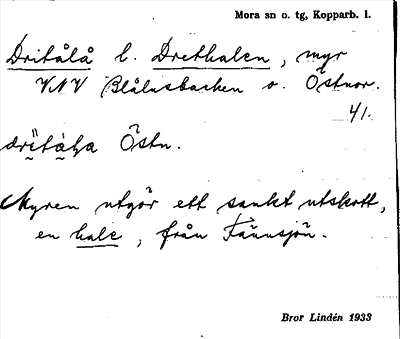 Mora sn o. tg, Kopparb. l.
Dritålå l. Drethalen, myr
VNV Blålusbacken o. Östnor.
41.
Östn.
Myren utgör ett sankt utskott,
en hale, från Fännsjön.
Bror Lindén 1933